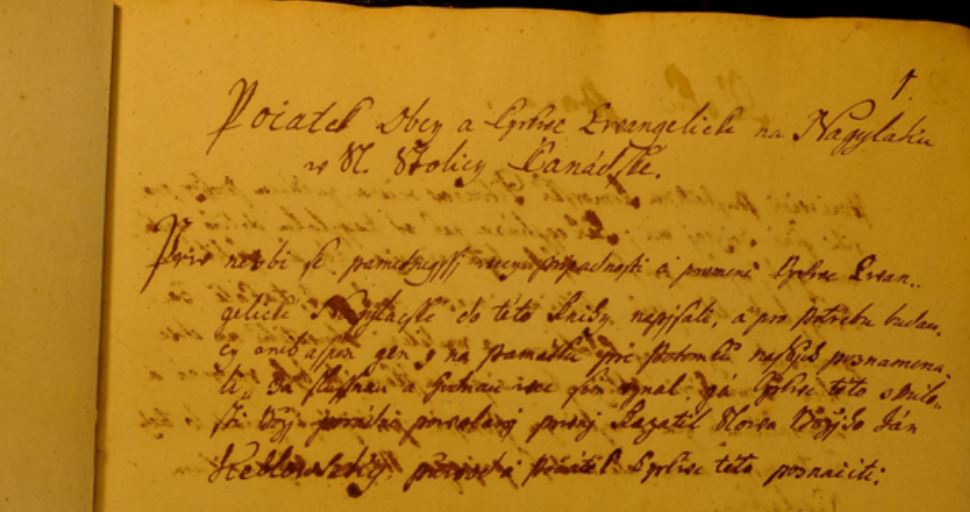 1.
Počátek Obcy a Cyrkve Evangelické na Nagylaku
w Sl. Stolicy Čanádské.
Prw nežbi se pametnegssj wecy, pripadnosti a promeni Cyrkve Ewan-
gelické Nagylacské do této Knihy napisali, a pro potrebu budau-
cy aneb aspon gen y na Památku pre Potomkú nassých poznamena-
li, za slussnau a hodnau wec sem uznal, gá Cyrkve této z Milo-
sti Božj poradne powolaný prwnj Kazatel Slowa Božjho Ján
Keblowszký, púwod a Počátek Cyrkve této poznačiti: